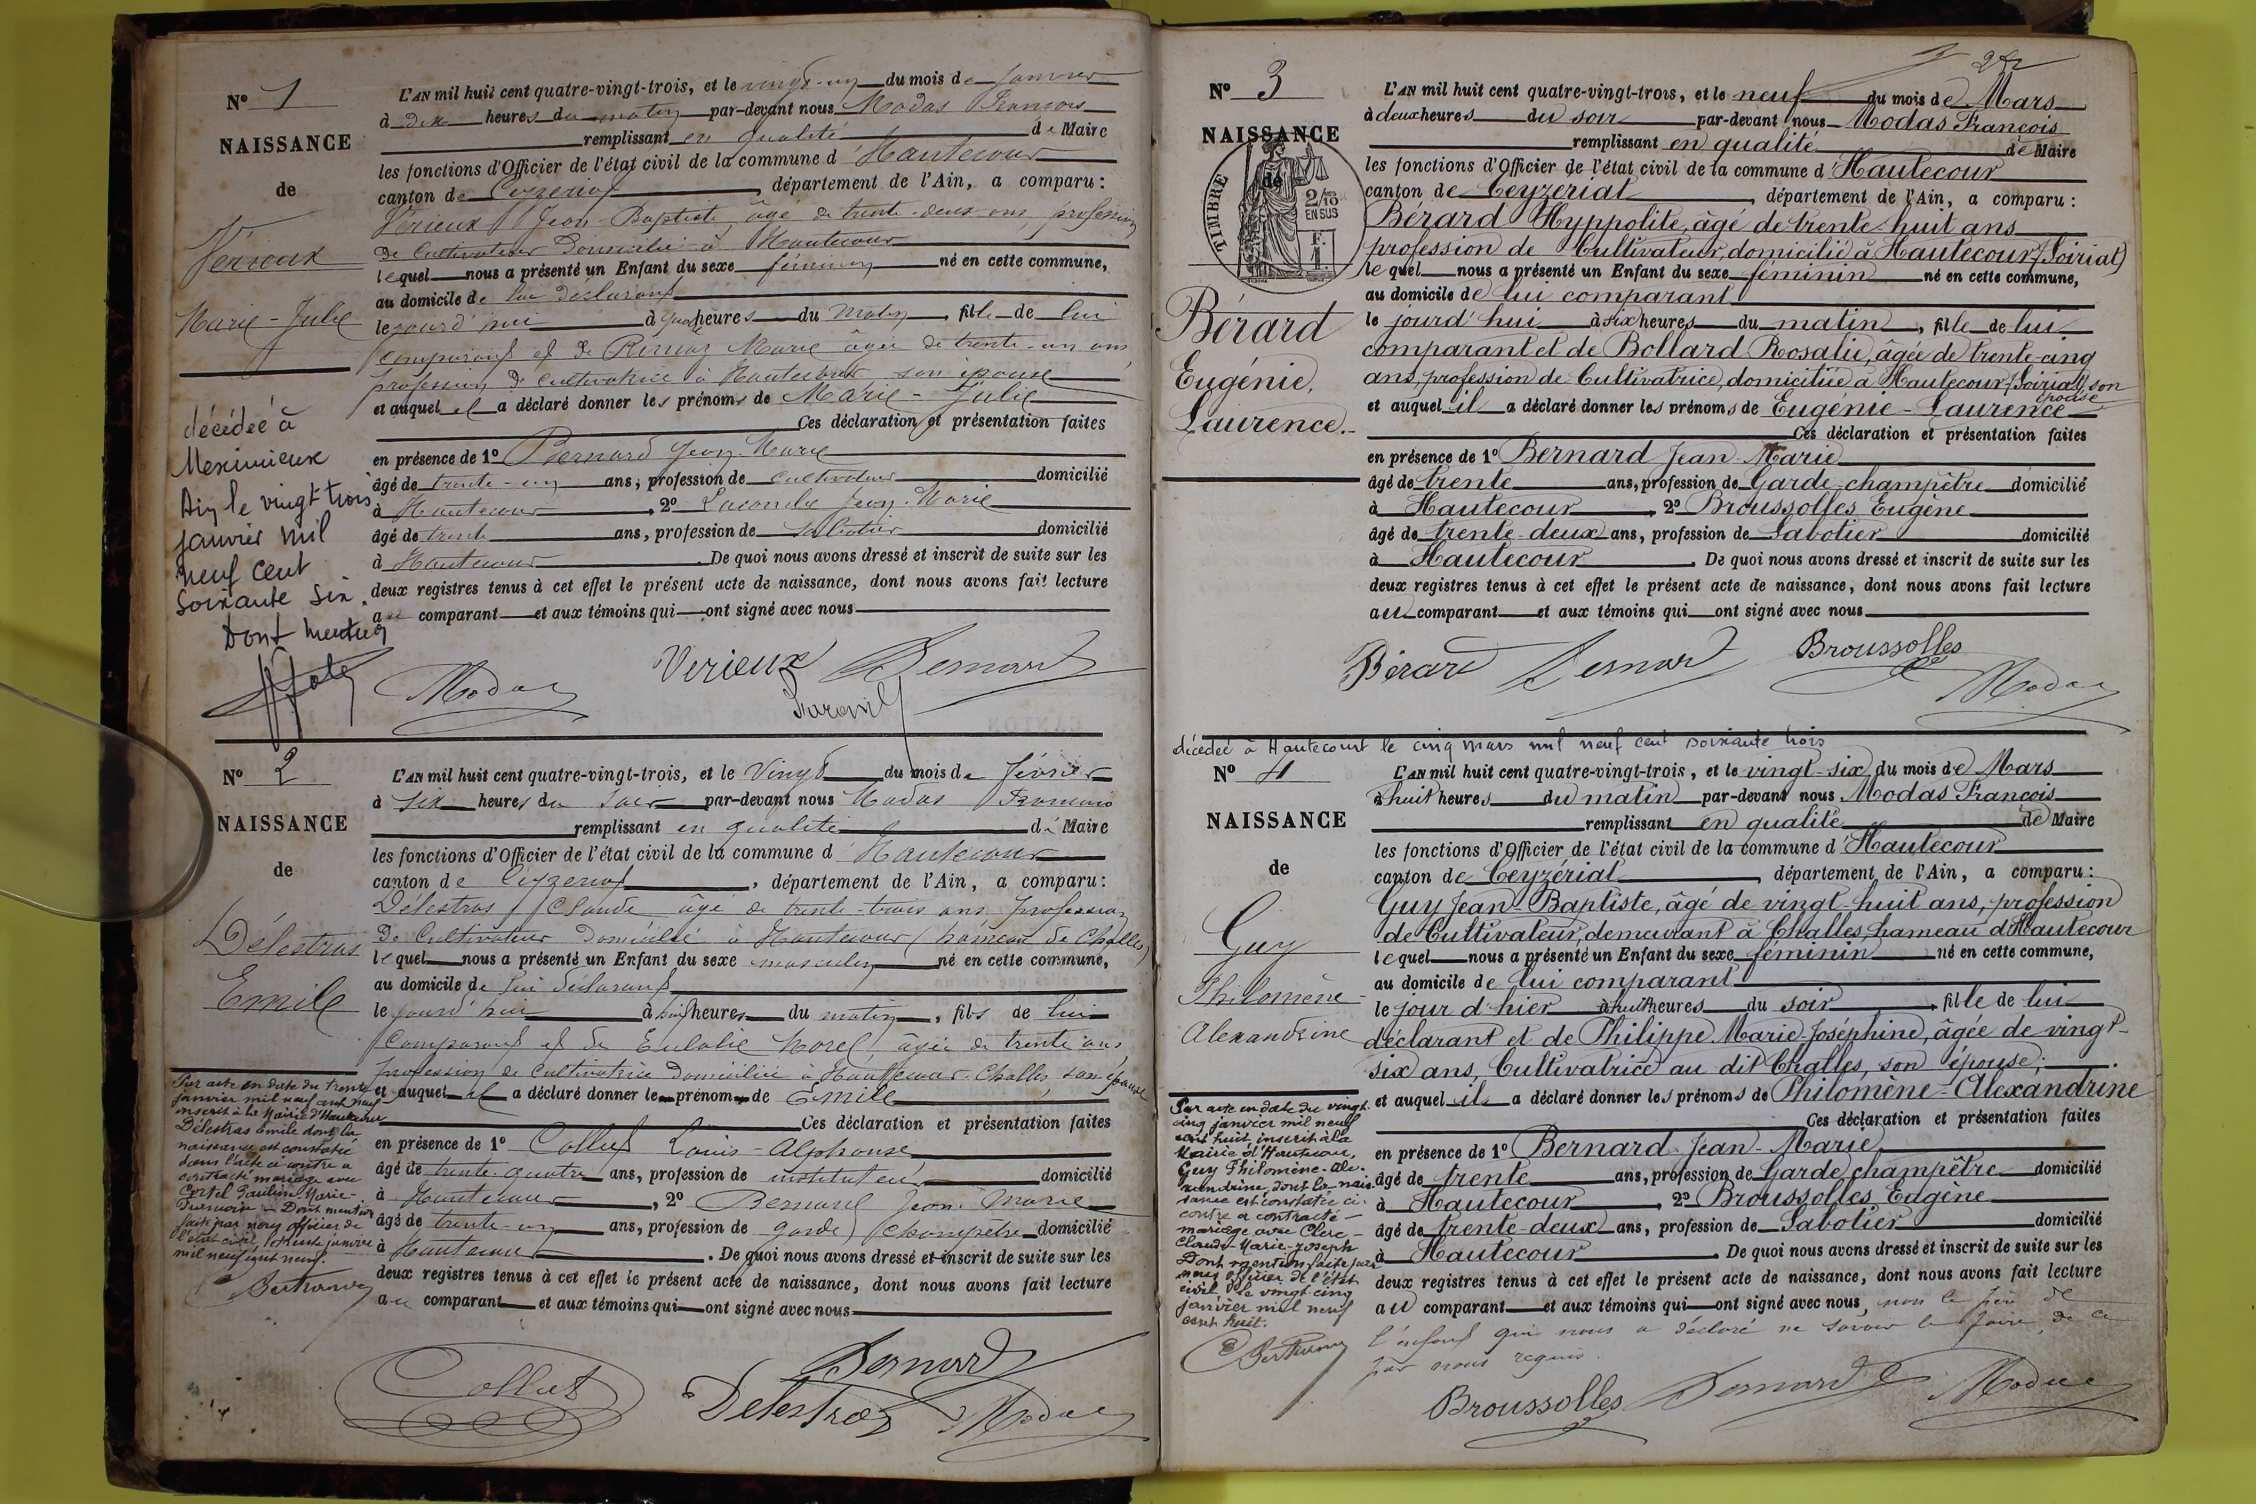 N° 1
NAISSANCE
de
Vérieux
Marie-Julie
décédée à
Meximieux
Ain le vingt trois
janvier mil
neuf cent
soixante six.
Dont mention
L'AN mil huit cent quatre-vingt-trois, et le vingt-un du mois de Janvier
à dix heures du matin par-devant nous Modas François
remplissant en qualité de Maire
les fonctions d'Officier de l'état civil de la commune d'Hautecour
canton de Ceyzeriat, département de l'Ain, a comparu :
Vérieux Jean-Baptiste, âgé de trente-deux ans, profession
de Cultivateur Domicilié à Hautecour
lequel nous a présenté un Enfant du sexe féminin né en cette commune,
au domicile de lui déclarant
le jourd'hui à heures du matin, fille de lui
comparant et de Marie âgée de trente-un ans,
profession de cultivatrice à Hautecour son épouse
et auquel il a déclaré donner les prénoms de Marie-Julie
Ces déclaration et présentation faites
en présence de 1° Bernard Jean-Marie
âgé de trente-un ans, profession de cultivateur domicilié
à Hautecour, 2° Lacombe Jean-Marie
âgé de trente ans, profession de domicilié
à Hautecour. De quoi nous avons dressé et inscrit de suite sur les
deux registres tenus à cet effet le présent acte de naissance, dont nous avons fait lecture
au comparant et aux témoins qui ont signé avec nous
Modas Verieux Bernard
N° 2
NAISSANCE
de
Délestras
Emile
Par acte en date du trente
janvier mil neuf cent neuf
inscrit à la Mairie d'Hautecour
Délestras Emile dont la
naissance est constatée
dans l'acte ci contre a
contracté mariage avec
Cortel Pauline Marie-
Dont mention
faite par nous officier de
l'état civil le trente janvier
mil neuf cent neuf.
Bertrand
L'AN mil huit cent quatre-vingt-trois, et le Vingt du mois de février
à six heures du soir par-devant nous Modas François
remplissant en qualité de Maire
les fonctions d'Officier de l'état civil de la commune d'Hautecour
canton de Ceyzeriat, département de l'Ain, a comparu :
Délestras Claude âgé de trente-trois ans profession
de Cultivateur Domicilié à Hautecour (hameau de Challes)
lequel nous a présenté un Enfant du sexe masculin né en cette commune,
au domicile de lui déclarant
le jourd'hui à heures du matin, fils de lui
comparant et de Eulalie Morel âgée de trente ans
profession de Cultivatrice Domiciliée à Hautecour-Challes son épouse
et auquel il a déclaré donner le prénom de Emile
Ces déclaration et présentation faites
en présence de 1° Collet Louis-Alphonse
âgé de trente-quatre ans, profession de instituteur domicilié
à Hautecour, 2° Bernard Jean-Marie
âgé de trente-un ans, profession de garde Champêtre domicilié
à Hautecour. De quoi nous avons dressé et inscrit de suite sur les
deux registres tenus à cet effet le présent acte de naissance, dont nous avons fait lecture
au comparant et aux témoins qui ont signé avec nous
Bernard
Collet Delestras Modas
N° 3
NAISSANCE
de
TIMBRE
2/10
EN SUS
Bérard
Eugénie,
Laurence.
L'AN mil huit cent quatre-vingt-trois, et le neuf du mois de Mars
à deux heures du soir par-devant nous Modas François
remplissant en qualité de Maire
les fonctions d'Officier de l'état civil de la commune d'Hautecour
canton de Ceyzériat, département de l'Ain, a comparu :
Bérard Hyppolite, âgé de trente-huit ans
profession de Cultivateur, domicilié à Hautecour (Soiriat)
lequel nous a présenté un Enfant du sexe féminin né en cette commune,
au domicile de lui comparant
le jourd'hui à six heures du matin, fille de lui
comparant et de Bollard Rosalie, âgée de trente-cinq
ans, profession de Cultivatrice, domiciliée à Hautecour (Soiriat), son
épouse
et auquel il a déclaré donner les prénoms de Eugénie-Laurence
Ces déclaration et présentation faites
en présence de 1° Bernard Jean-Marie
âgé de trente ans, profession de Garde-champêtre domicilié
à Hautecour, 2° Broussolles Eugène
âgé de trente-deux ans, profession de Sabotier domicilié
à Hautecour. De quoi nous avons dressé et inscrit de suite sur les
deux registres tenus à cet effet le présent acte de naissance, dont nous avons fait lecture
au comparant et aux témoins qui ont signé avec nous
Bérard Bernard Broussolles Modas
décédée à Hautecourt le cinq mars mil neuf cent soixante trois
N° 4
NAISSANCE
de
Guy
Philomène-
Alexandrine
Par acte en date du vingt-
cinq janvier mil neuf
cent huit inscrit à la
Mairie d'Hautecour,
Guy Philomène-Ale-
xandrine dont la nais-
sance est constatée ci-
contre a contracté
mariage avec Clerc
Claude-Marie-Joseph
Dont mention faite par
nous officier de l'état
civil le vingt-cinq
janvier mil neuf
cent huit.
Bertrand
L'AN mil huit cent quatre-vingt-trois, et le vingt-six du mois de Mars
à huit heures du matin par-devant nous Modas François
remplissant en qualité de Maire
les fonctions d'Officier de l'état civil de la commune d'Hautecour
canton de Ceyzériat, département de l'Ain, a comparu :
Guy Jean-Baptiste, âgé de vingt-huit ans, profession
de Cultivateur, demeurant à Challes, hameau d'Hautecour
lequel nous a présenté un Enfant du sexe féminin né en cette commune,
au domicile de lui comparant
le jour d'hier à huit heures du soir, fille de lui
déclarant et de Philippe Marie-Joséphine, âgée de vingt-
six ans, Cultivatrice au dit Challes, son épouse;
et auquel il a déclaré donner les prénoms de Philomène-Alexandrine
Ces déclaration et présentation faites
en présence de 1° Bernard Jean-Marie
âgé de trente ans, profession de Garde champêtre domicilié
à Hautecour, 2° Broussolles Eugène
âgé de trente-deux ans, profession de Sabotier domicilié
à Hautecour. De quoi nous avons dressé et inscrit de suite sur les
deux registres tenus à cet effet le présent acte de naissance, dont nous avons fait lecture
au comparant et aux témoins qui ont signé avec nous, non le père de
l'enfant qui nous a déclaré ne savoir le faire, de ce
par nous requis.
Broussolles Bernard Modas